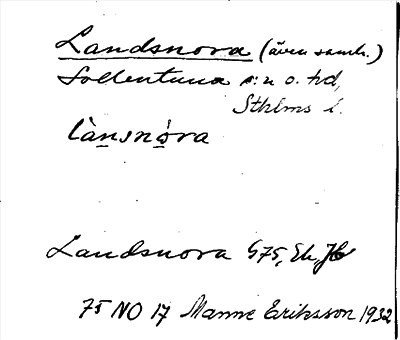 Landsnora (även samh.)
Sollentuna s:n o. hd,
Sthlms l.
lànsnóra
Landsnora G75, Ek, Jb
75 NO 17 Manne Eriksson 1932